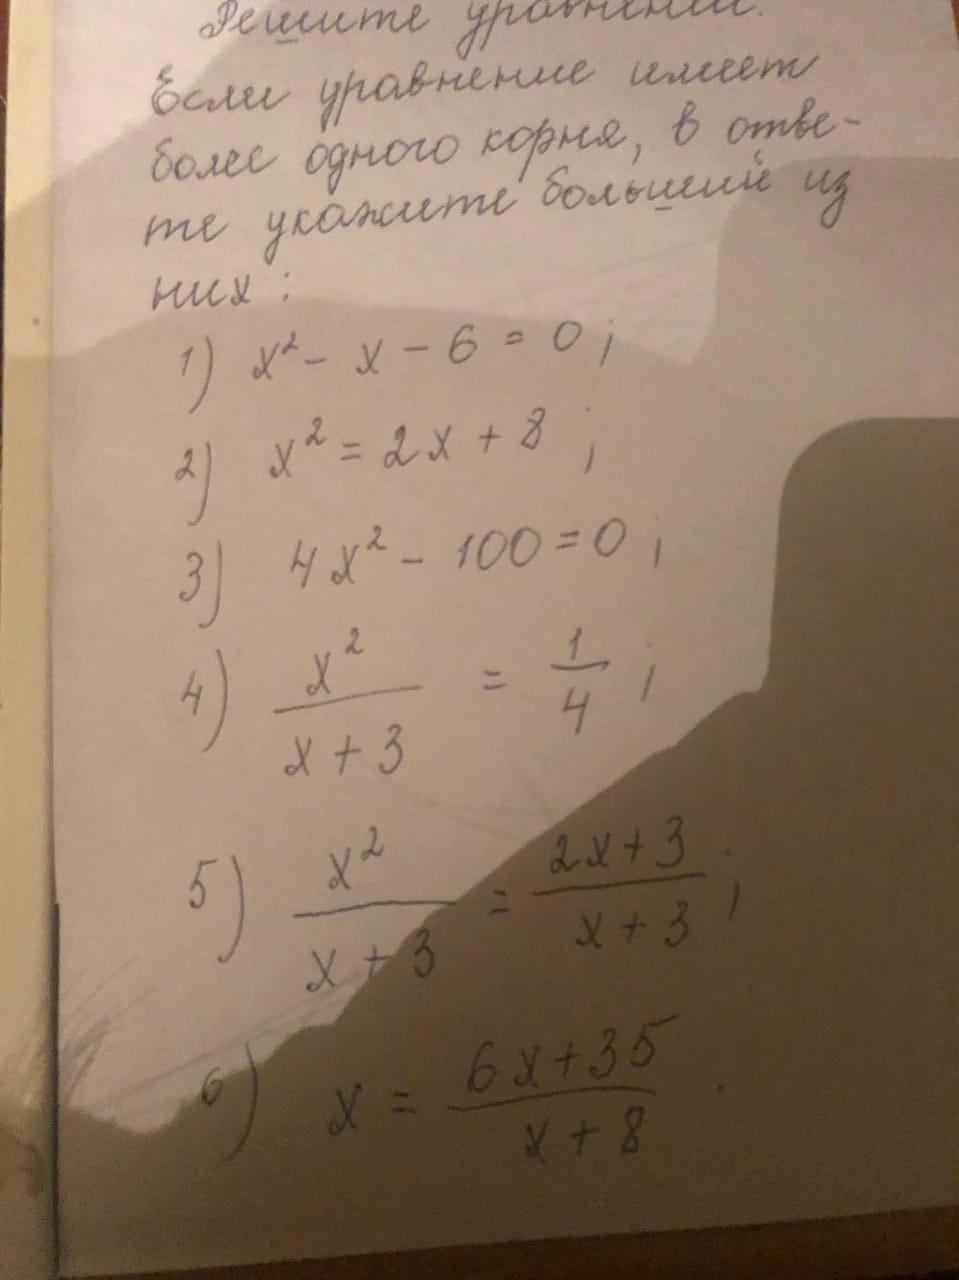 Решите уравнения.
Если уравнение имеет
более одного корня, в отве-
те укажите больший из
них:
1) x² - x - 6 = 0;
2) x² = 2x + 8;
3) 4x² - 100 = 0;
4) x²/(x + 3) = 1/4;
5) x²/(x + 3) = (2x + 3)/(x + 3);
6) x = (6x + 35)/(x + 8).